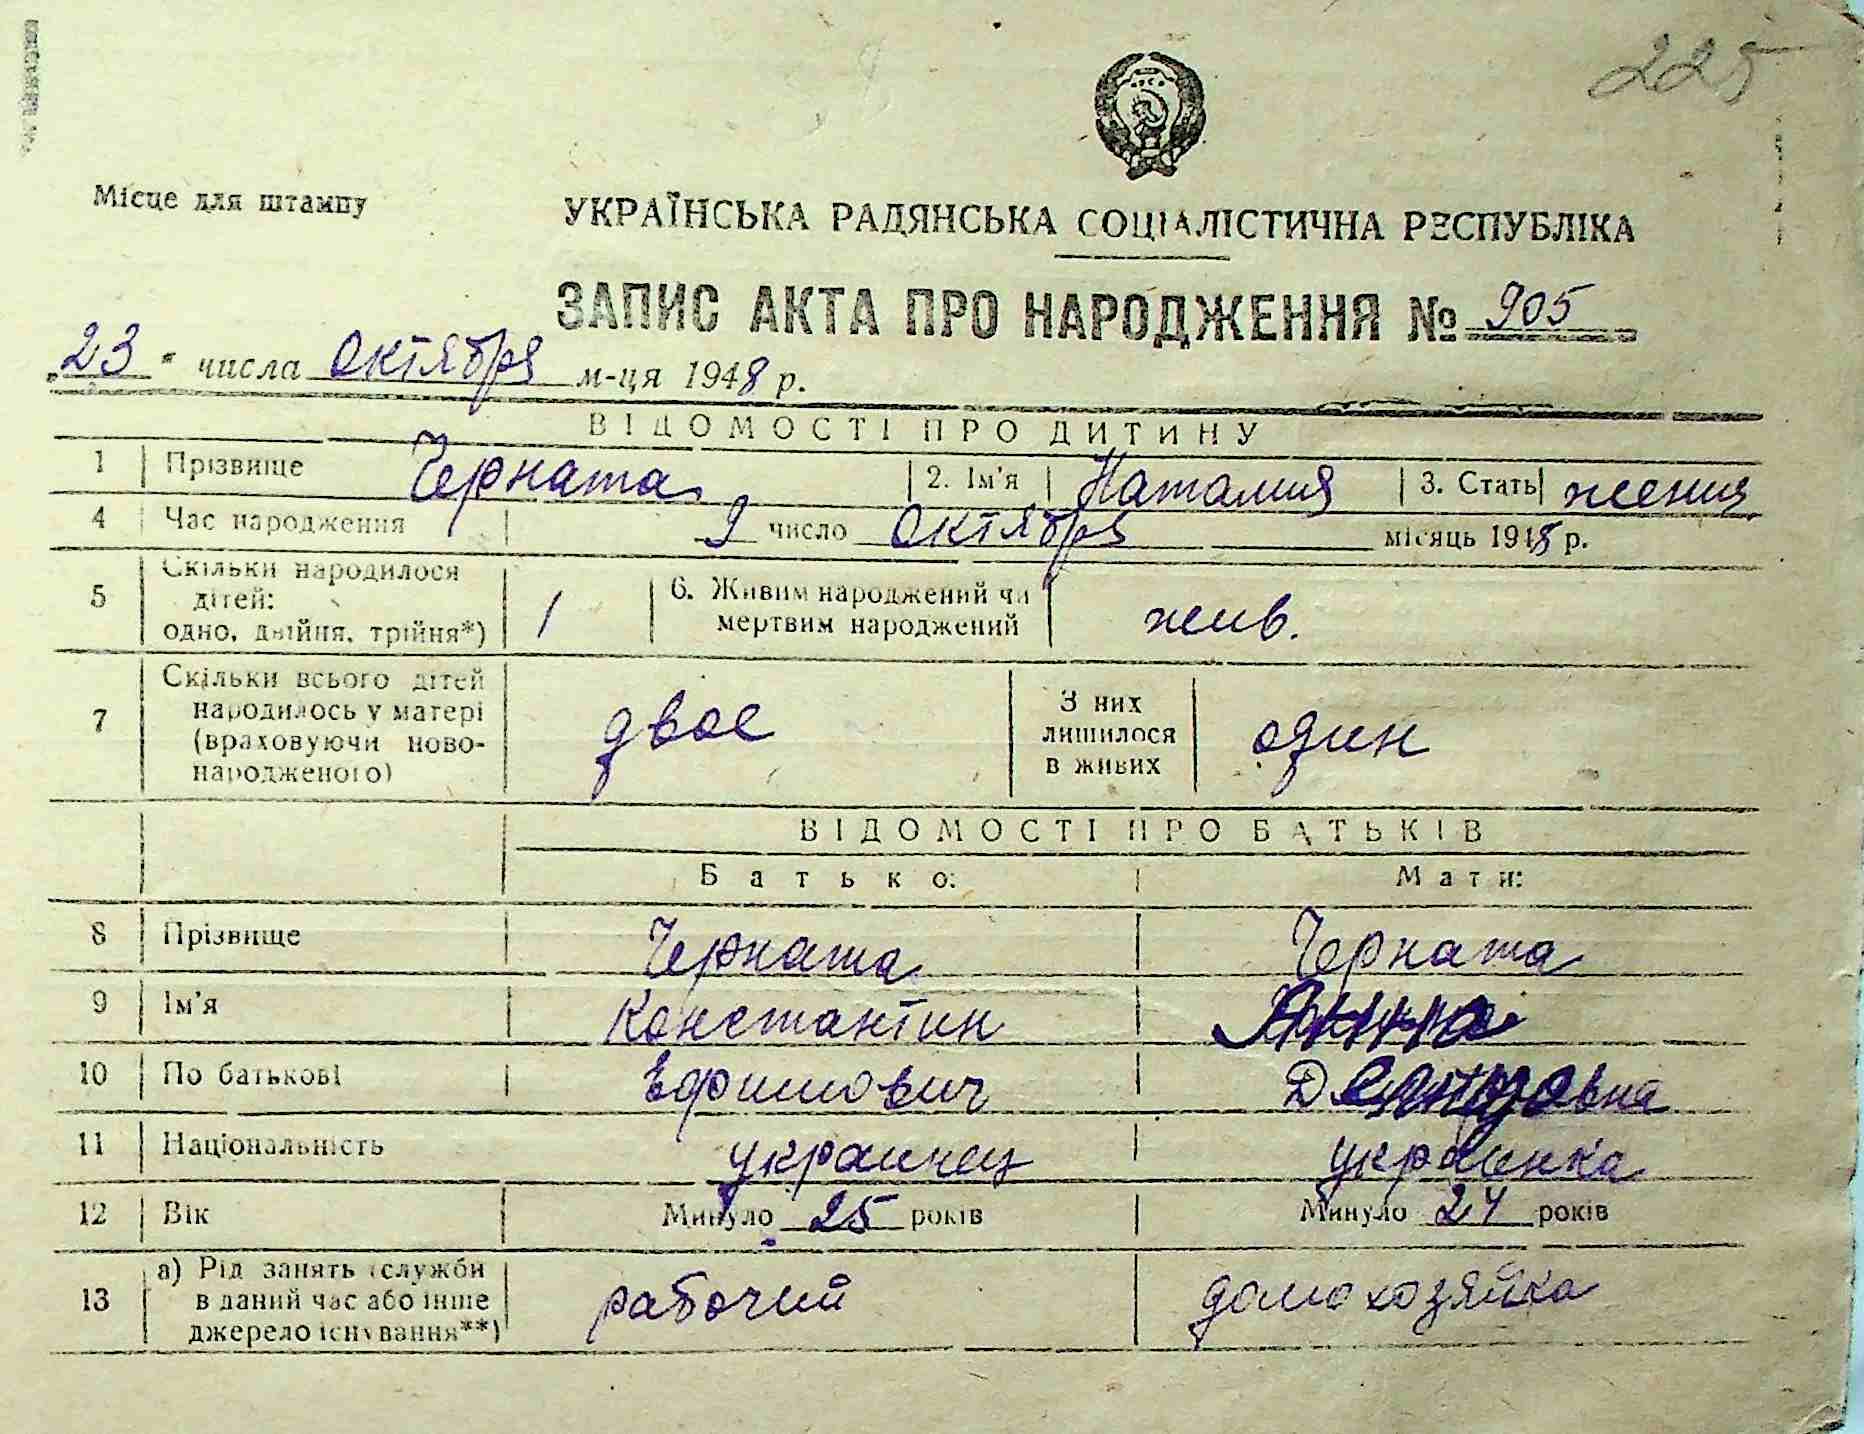 225
Місце для штампу
УКРАЇНСЬКА РАДЯНСЬКА СОЦІАЛІСТИЧНА РЕСПУБЛІКА
ЗАПИС АКТА ПРО НАРОДЖЕННЯ № 905
„23" числа октября м-ця 1948 р.
ВІДОМОСТІ ПРО ДИТИНУ
1 Прізвище Черната 2. Ім'я Наталия 3. Стать
4 Час народження 9 число октября місяць 1948 р.
5 Скільки народилося дітей: одно, двійня, трійня*) 1 6. Живим народжений чи мертвим народжений жив.
7 Скільки всього дітей народилось у матері (враховуючи новонародженого) двое З них лишилося в живих один
ВІДОМОСТІ ПРО БАТЬКІВ
Батько: Мати:
8 Прізвище Черната Черната
9 Ім'я Константин Анна
10 По батькові Ефимович
11 Національність украинец украинка
12 Вік Минуло 25 років Минуло 24 років
13 а) Рід занять (служби в даний час або інше джерело існування**) рабочий домохозяйка